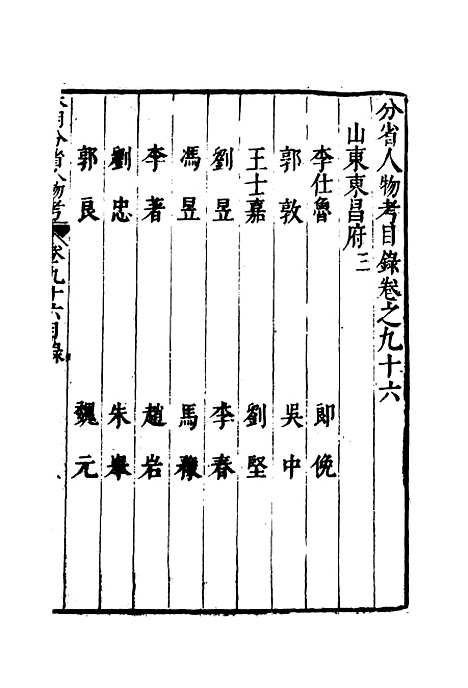 分省人物考目錄卷之九十六
山東東昌府三
李仕魯 郎俛
郭敦 吳中
王士嘉 劉堅
劉昱 李春
馮昱 馬
李著 趙岩
劉忠 朱
郭良 魏元
分省人物考 卷九十六目錄